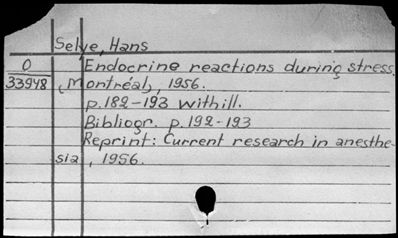 Selye, Hans
O Endocrine reactions during stress.
33948 (Montréal), 1956.
p.182-193 with ill.
Bibliogr. p.192-193
Reprint: Current research in anesthe-
sia, 1956.